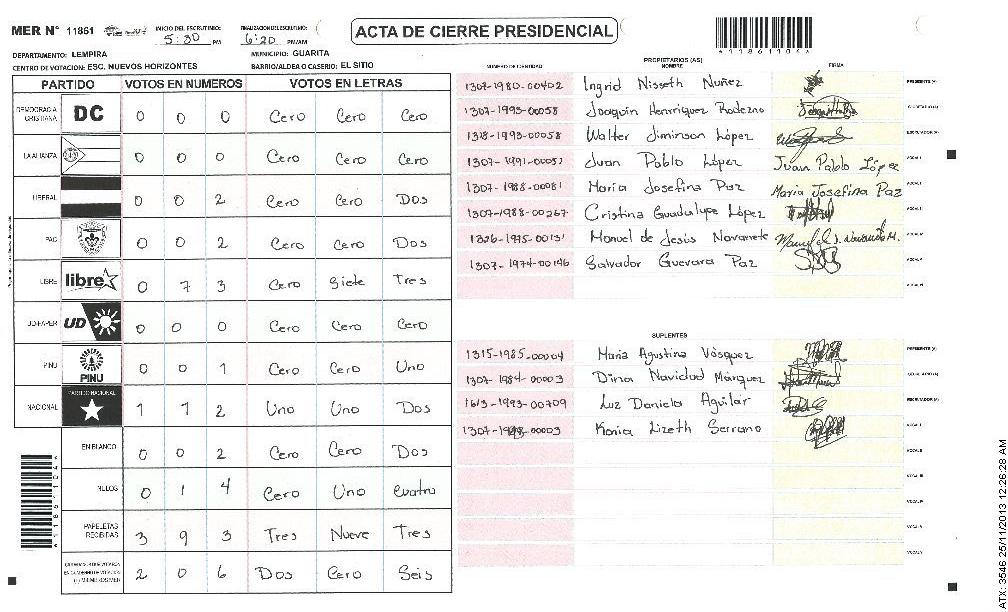 MER N° 11861 INICIO DEL ESCRUTINIO: 5:30 PM FINALIZACION DEL ESCRUTINIO: 6:20 PM/AM
ACTA DE CIERRE PRESIDENCIAL
*11861104*
DEPARTAMENTO: LEMPIRA MUNICIPIO: GUARITA
CENTRO DE VOTACION: ESC. NUEVOS HORIZONTES BARRIO/ALDEA O CASERIO: EL SITIO
PARTIDO VOTOS EN NUMEROS VOTOS EN LETRAS
DEMOCRACIA CRISTIANA DC 0 0 0 Cero Cero Cero
LA ALIANZA 0 0 0 Cero Cero Cero
LIBERAL 0 0 2 Cero Cero Dos
PAC 0 0 2 Cero Cero Dos
LIBRE libre 0 7 3 Cero Siete Tres
UD-FAPER UD 0 0 0 Cero Cero Cero
PINU PINU 0 0 1 Cero Cero Uno
NACIONAL PARTIDO NACIONAL 1 1 2 Uno Uno Dos
EN BLANCO 0 0 2 Cero Cero Dos
NULOS 0 1 4 Cero Uno Cuatro
PAPELETAS RECIBIDAS 3 9 3 Tres Nueve Tres
2 0 6 Dos Cero Seis
PROPIETARIOS (AS)
NUMERO DE IDENTIDAD NOMBRE FIRMA
1307-1980-00402 Ingrid Nisseth Nuñez PRESIDENTE (A)
1307-1993-00058 Joaquin Henrriquez Rodezno SECRETARIO (A)
1318-1993-00058 Walter Jiminson López ESCRUTADOR (A)
1307-1991-00051 Juan Pablo López Juan Pablo López VOCAL I
1307-1988-00081 Maria Josefina Paz Maria Josefina Paz
1307-1988-00267 Cristina Guadalupe López
1326-1975-00131 Manuel de Jesús Navarrete
1307-1974-00146 Salvador Guevara Paz
SUPLENTES
1315-1985-00004 Maria Agustina Vásquez PRESIDENTE (A)
1307-1984-00003 Dina Navidad Márquez SECRETARIO (A)
1613-1993-00709 Luz Daniela Aguilar ESCRUTADOR (A)
Kenia Lizeth Serrano VOCAL I
VOCAL II
VOCAL III
VOCAL IV
VOCAL V
ATX: 3546 25/11/2013 12:26:28 AM